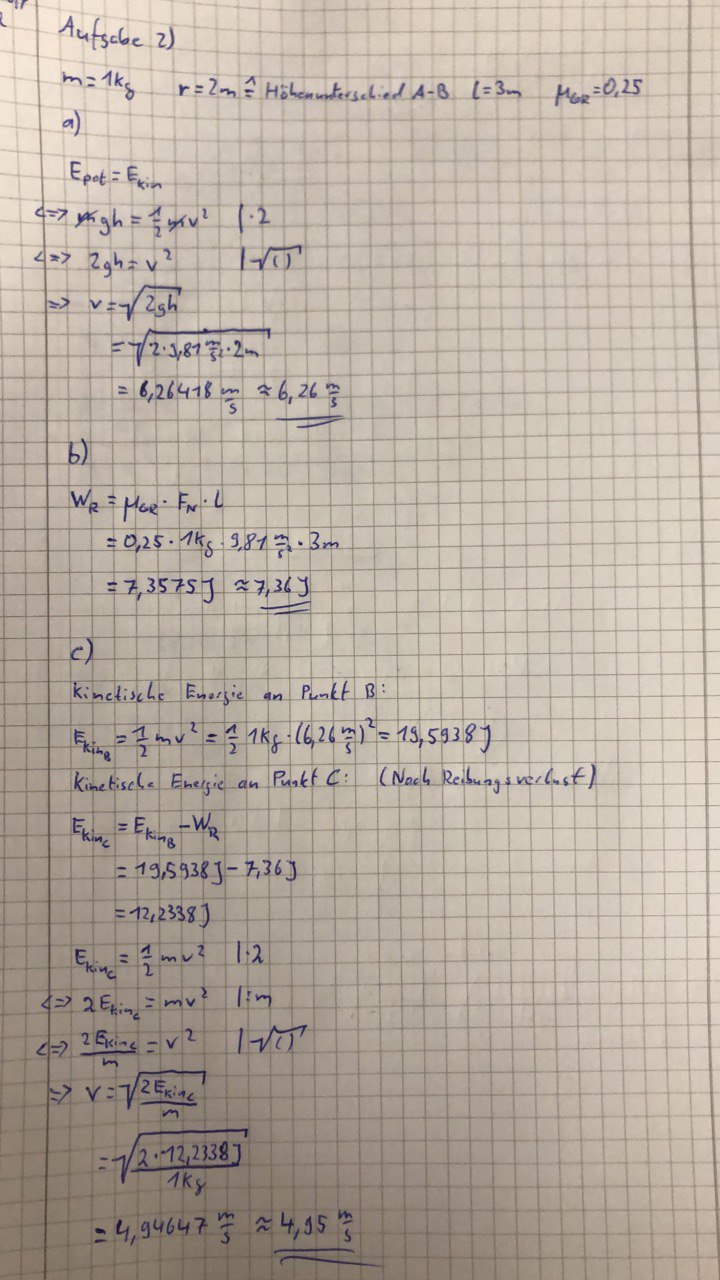 Aufgabe 2)
m = 1kg r = 2m ≙ Höhenunterschied A-B l = 3m μ_GR = 0,25
a)
E_pot = E_kin
<=> mgh = 1/2 mv² |·2
<=> 2gh = v² |√()
=> v = √(2gh)
= √(2·9,81 m/s²·2m)
= 6,26418 m/s ≈ 6,26 m/s
b)
W_R = μ_GR · F_N · l
= 0,25 · 1kg · 9,81 m/s² · 3m
= 7,3575J ≈ 7,36J
c)
Kinetische Energie an Punkt B:
E_kin_B = 1/2 mv² = 1/2 1kg · (6,26 m/s)² = 19,5938J
Kinetische Energie an Punkt C: (Nach Reibungsverlust)
E_kin_C = E_kin_B - W_R
= 19,5938J - 7,36J
= 12,2338J
E_kin_C = 1/2 mv² |·2
<=> 2E_kin_C = mv² |:m
<=> 2E_kin_C/m = v² |√()
=> v = √(2E_kin_C/m)
= √(2·12,2338J/1kg)
= 4,94647 m/s ≈ 4,95 m/s